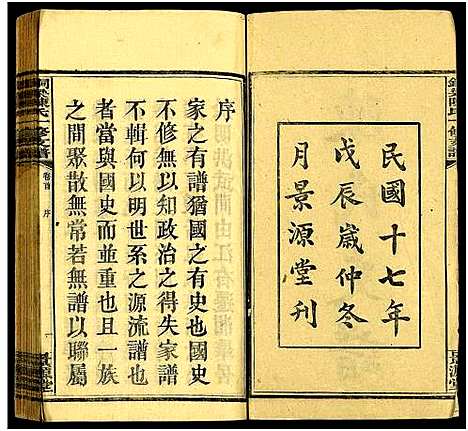 民國十七年
戊辰歲仲冬
月景源堂刊
序
家之有譜猶國之有史也國史
不修無以知政治之得失家譜
不輯何以明世系之源流譜也
者當與國史而並重也且一族
之間聚散無常若無譜以聯屬
陳氏一修支譜
卷首
序
景源堂